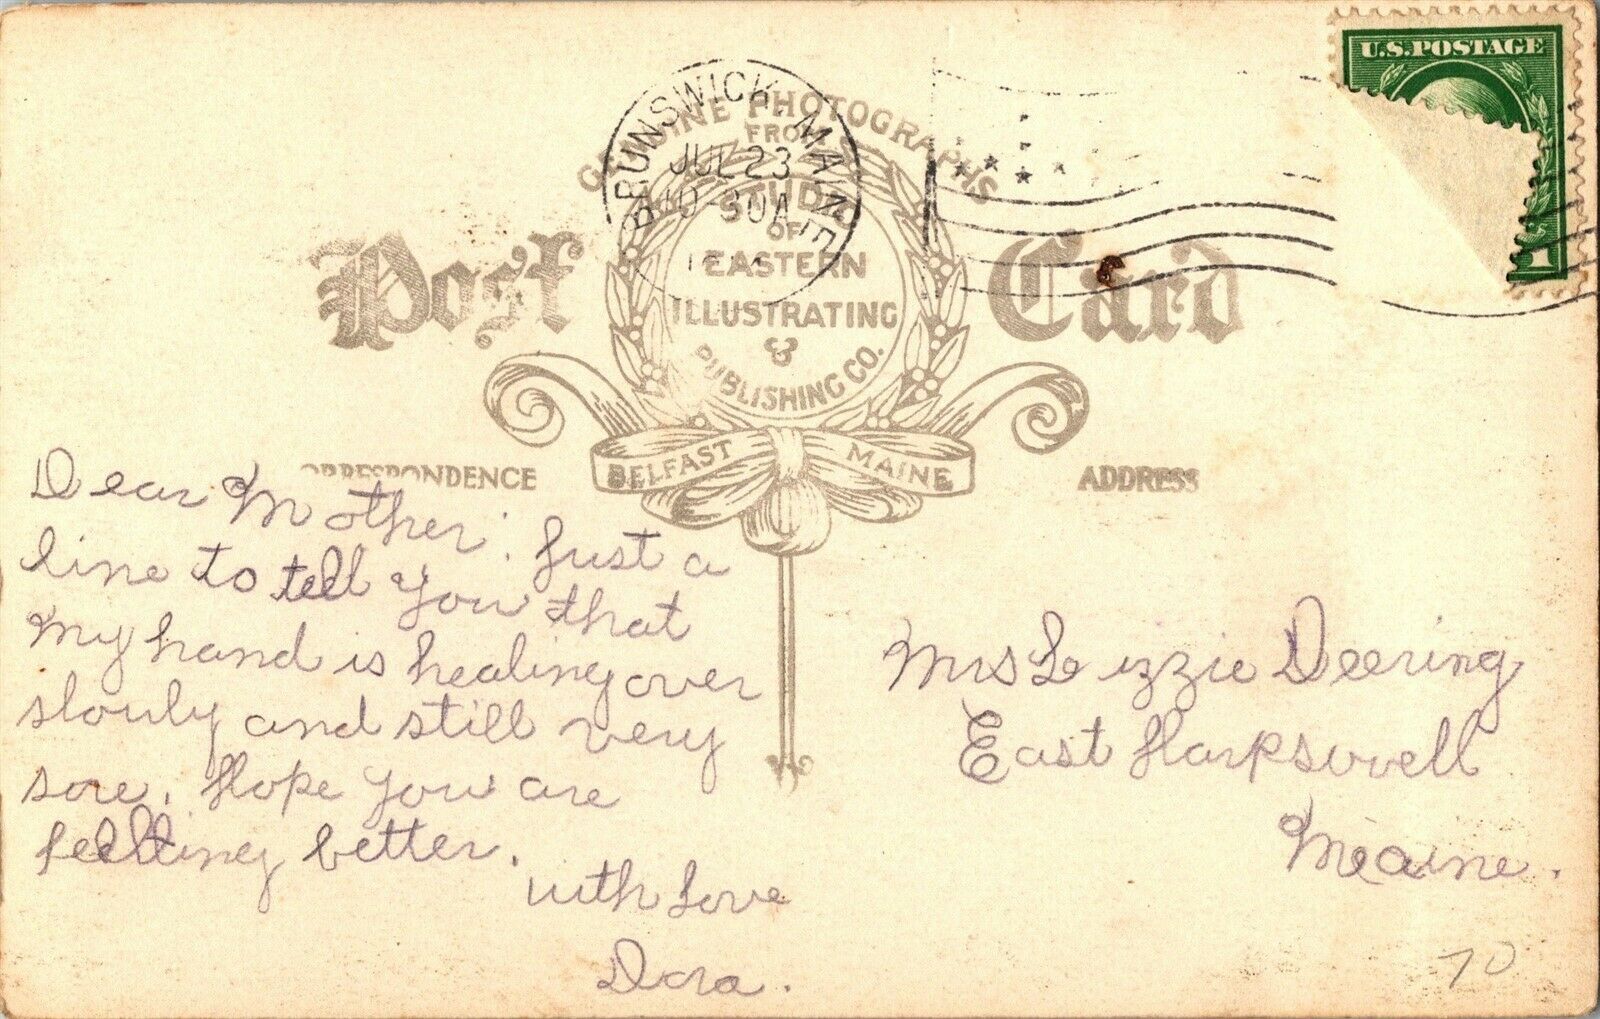 U.S. POSTAGE
1
BRUNSWICK, MAINE
JUL 23
10-30A
GENUINE PHOTOGRAPHS
FROM
STUDIO
OF
EASTERN
ILLUSTRATING
&
PUBLISHING CO.
BELFAST MAINE
Post Card
CORRESPONDENCE
ADDRESS
Dear Mother: Just a
line to tell you that
my hand is healing over
slowly and still very
sore. Hope you are
feeling better.
with love
Dora.
Mrs Lizzie Deering
East Harpswell
Maine.
70